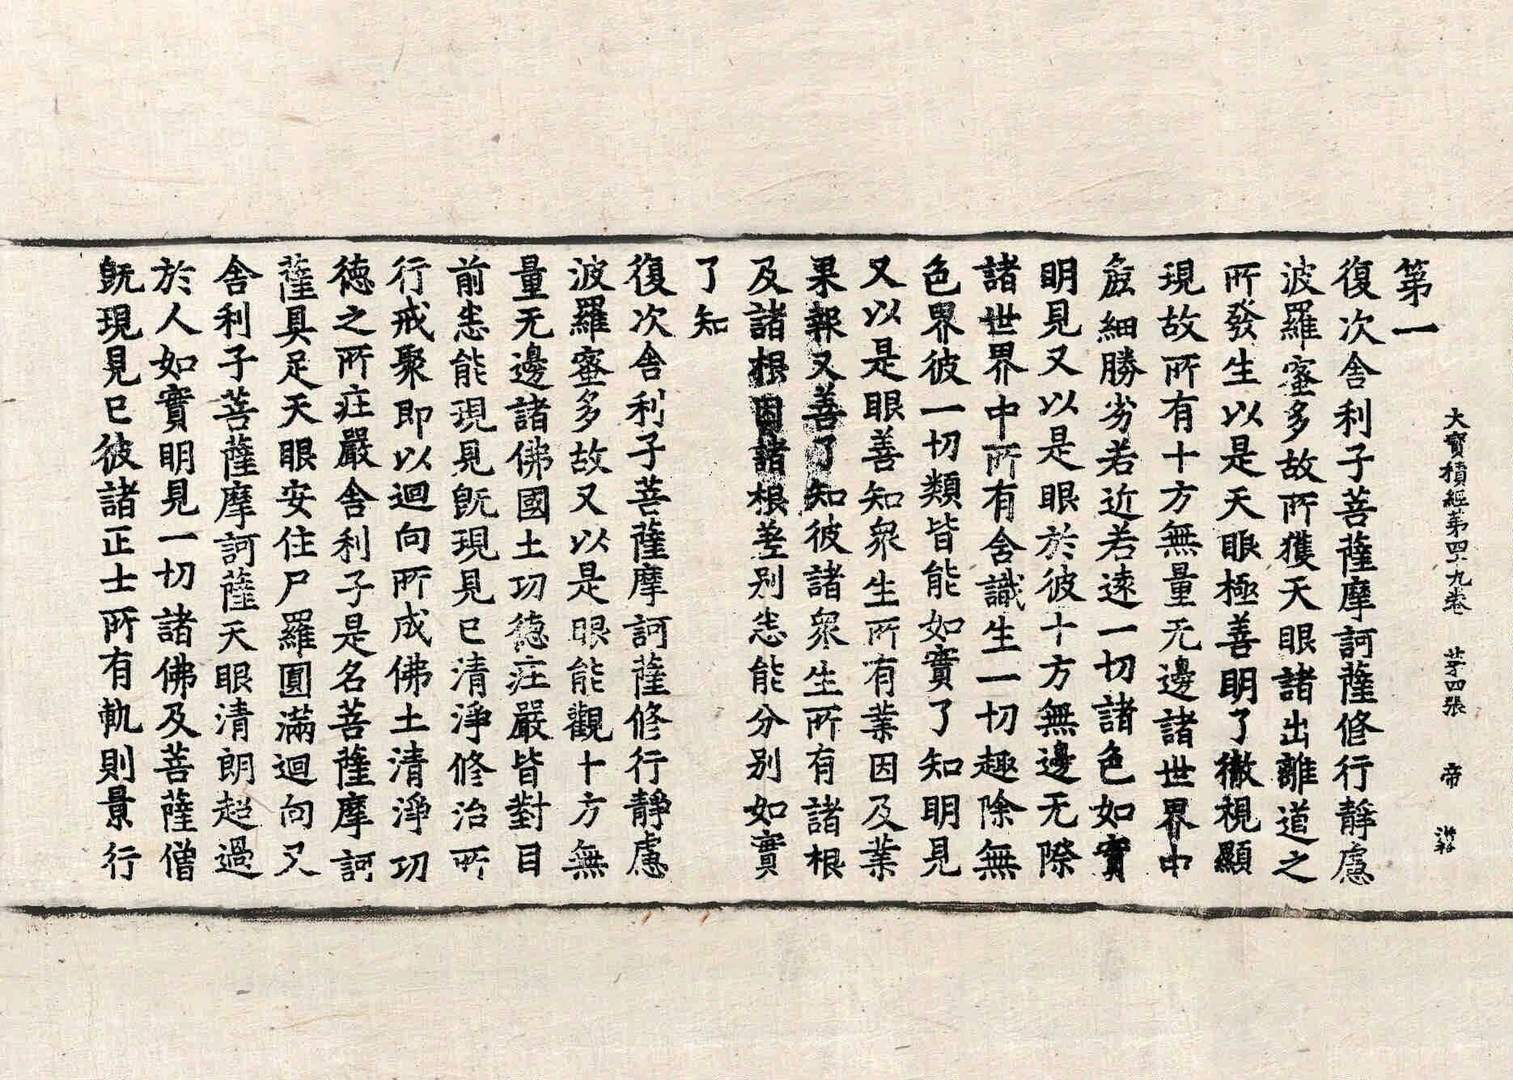 大寳積經第四十九卷　第四張　帝
第一
復次舍利子菩薩摩訶薩修行靜慮
波羅蜜多故所獲天眼諸出離道之
所發生以是天眼極善明了徹視顯
現故所有十方無量无邊諸世界中
麁細勝劣若近若遠一切諸色如實
明見又以是眼於彼十方無邊无際
諸世界中所有含識生一切趣除無
色界彼一切類皆能如實了知明見
又以是眼善知衆生所有業因及業
果報又善了知彼諸衆生所有諸根
及諸根因諸根差別悉能分別如實
了知
復次舍利子菩薩摩訶薩修行靜慮
波羅蜜多故又以是眼能觀十方無
量无邊諸佛國土功德莊嚴皆對目
前悉能現見旣現見已清淨修治所
行戒聚即以迴向所成佛土清淨功
德之所莊嚴舍利子是名菩薩摩訶
薩具足天眼安住尸羅圓滿迴向又
舍利子菩薩摩訶薩天眼清朗超過
於人如實明見一切諸佛及菩薩僧
旣現見已彼諸正士所有軌則景行